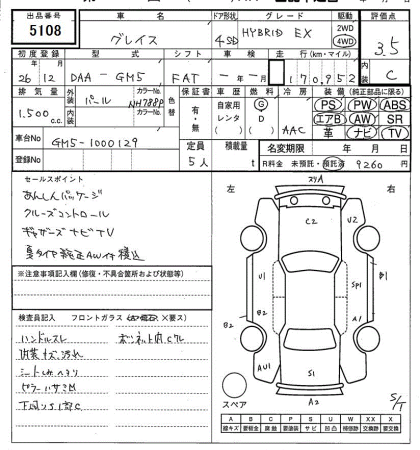 出品番号 車名 ドア形状 グレード 駆動 評価点
5108 グレイス 4SD HYBRID EX 2WD 4WD 3.5
初度登録 型式 シフト 車検 走行(km・マイル) 内装
26 12 DAA-GM5 FAT - 年 - 月 170,952 C
排気量 外装 カラーNo. 色替 保証書 車歴 燃料 冷房 装備(純正部品に限る)
1.500 c.c. パール NH788P 有・無 自家用 G PS PW ABS
内装 カラーNo. レンタ D エアB AW SR
( ) AAC 革 ナビ TV
車台No GM5-1000129 定員 積載量 名変期限 年 月 日
登録No 5人 t R料金 未預託・預託済 9260 円
セールスポイント
あんしんパッケージ
クルーズコントロール
ギャザーズナビTV
夏タイヤ純正AW付積込
※注意事項記入欄(修復・不具合箇所および状態等)
検査員記入 フロントガラス ×要ス)
ハンドルスレ ボンネット内Cワレ
内装キズ汚れ
シートしみ
下回りS1部C
左 右
スリA
C2
U2
U1
B1
SP1
B2
B2
A1
AU1
S1
A2
S/T
スペア
A B C P S U W X XX
線キズ 要板金 腐蝕 要塗装 サビ 凹凸 補修跡 交換跡 要交換